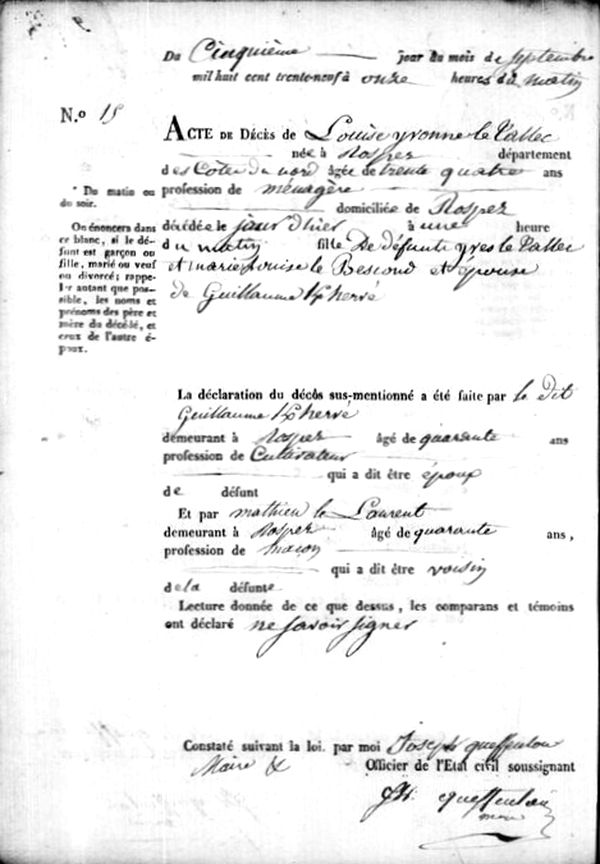 Du Cinquième jour du mois de Septembre
mil huit cent trente-neuf à onze heures du matin
N.º 15
ACTE DE DÉCÈS de Louise yvonne le Vallec
née à Rospez département
des Côtes du nord âgée de trente quatre ans
profession de ménagère
domiciliée de Rospez
décédée le jour d'hier à une heure
du matin fille De défunts yves le Vallec
et marie Louise le Bescond et épouse
de Guillaume Kherve
* Du matin ou
du soir.
On énoncera dans
ce blanc, si le dé-
funt est garçon ou
fille, marié ou veuf
ou divorcé; rappe-
ler autant que pos-
sible, les noms et
prénoms des père et
mère du décédé, et
ceux de l'autre é-
poux.
La déclaration du décès sus-mentionné a été faite par le dit
Guillaume Kherve
demeurant à Rospez âgé de quarante ans
profession de Cultivateur
qui a dit être époux
de défunt
Et par mathieu le Laurent
demeurant à Rospez âgé de quarante ans,
profession de maçon
qui a dit être voisin
de la défunte
Lecture donnée de ce que dessus, les comparans et témoins
ont déclaré ne savoir signer
Constaté suivant la loi, par moi Joseph
Maire & Officier de l'Etat civil soussignant
maire